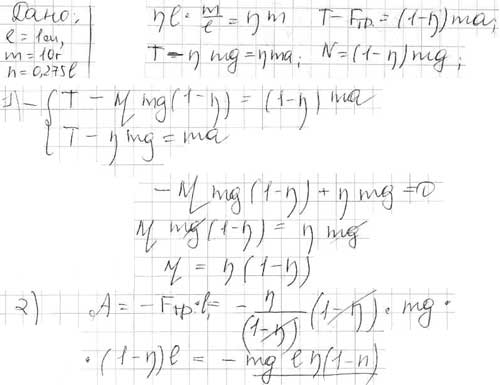 Дано:
l = 1см,
m = 10г
η = 0,275l
ηl · m/l = ηm
T - Fтр. = (1-η)ma;
T - η mg = ηma; N = (1-η)mg;
1) - { T - M mg(1-η) = (1-η) ma
T - η mg = ma
- M mg (1-η) + η mg = 0
M mg (1-η) = η mg
M = η (1-η)
2) A = - Fтр · l₁ = - η/(1-η) (1-η) · mg ·
· (1-η) l = - mg l η(1-η)